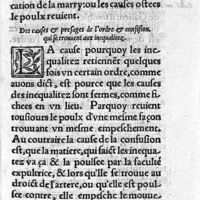 cation de la marry: ou les causes ostees
le poulx reuient.
Des causes & presages de l'ordre & confusion,
qui se trouuent aux inequalitez.
LA cause pourquoy les ine-
qualitez retiennẽt quelques
fois vn certain ordre, comme
auons dict, est pource que les causes
des inequalitez sont fermes, comme fi-
chees en vn lieu. Parquoy reuient
tousiours le poulx d'vne mesme façon
trouuant vn mesme empeschement.
Au contraire la cause de la confusion
est, que la matiere, qui faict les inequa-
litez va çà & là poulsee par la faculté
expultrice, & lors qu'elle se trouue au
droict de l'artere, ou qu'elle est poul-
see contre, elle empesche le mouue-